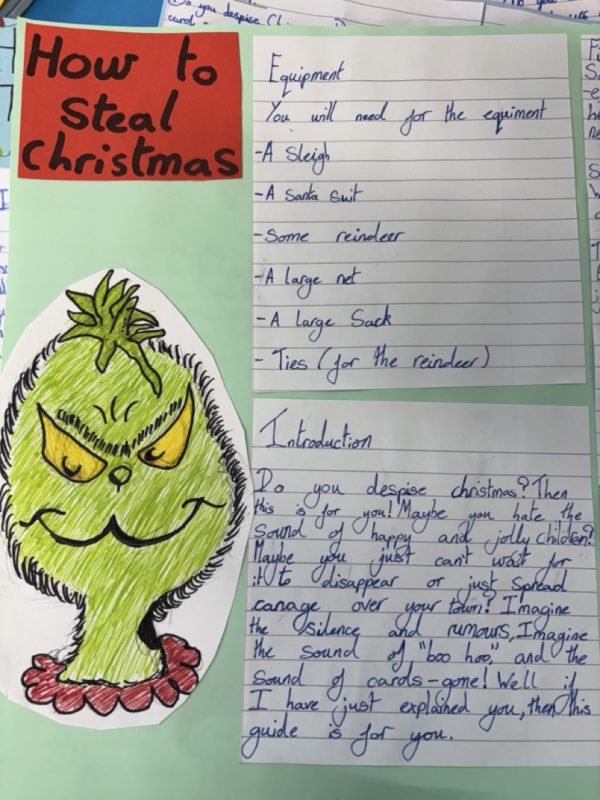 How to
Steal
Christmas
Equipment
You will need for the equiment
-A Sleigh
-A santa suit
-Some reindeer
-A large net
-A large Sack
- Ties (for the reindeer)
Introduction
Do you despise christmas? Then
this is for you! Maybe you hate the
sound of happy and jolly children?
Maybe you just can't wait for
it to disappear or just spread
canage over your town? Imagine
the silence and rumours, Imagine
the sound of "boo hoo," and the
sound of cards-gone! Well if
I have just explained you, then this
guide is for you.